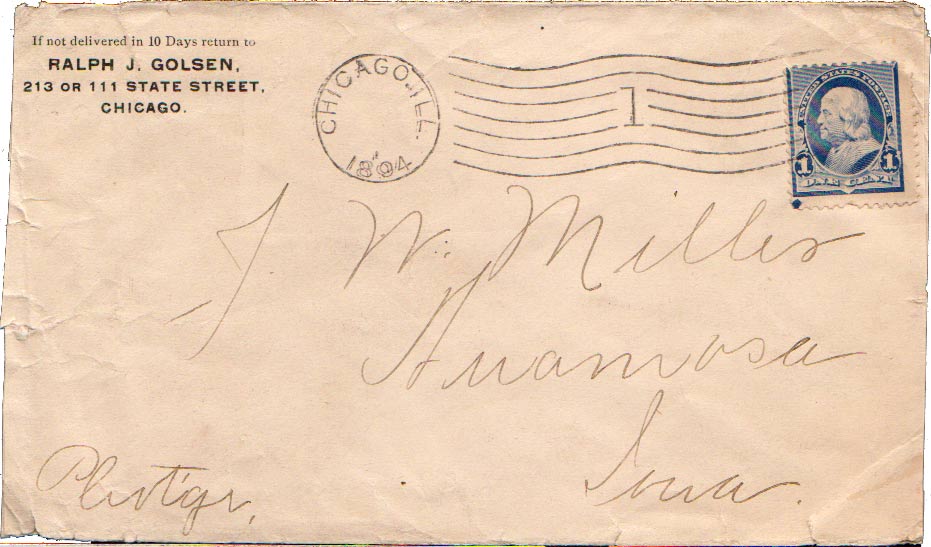 If not delivered in 10 Days return to
RALPH J. GOLSEN,
213 OR 111 STATE STREET,
CHICAGO.
CHICAGO, ILL.
1894
1
UNITED STATES POSTAGE
1 1
ONE CENT
J W. Miller
Anamosa
Iowa.
Photgr,